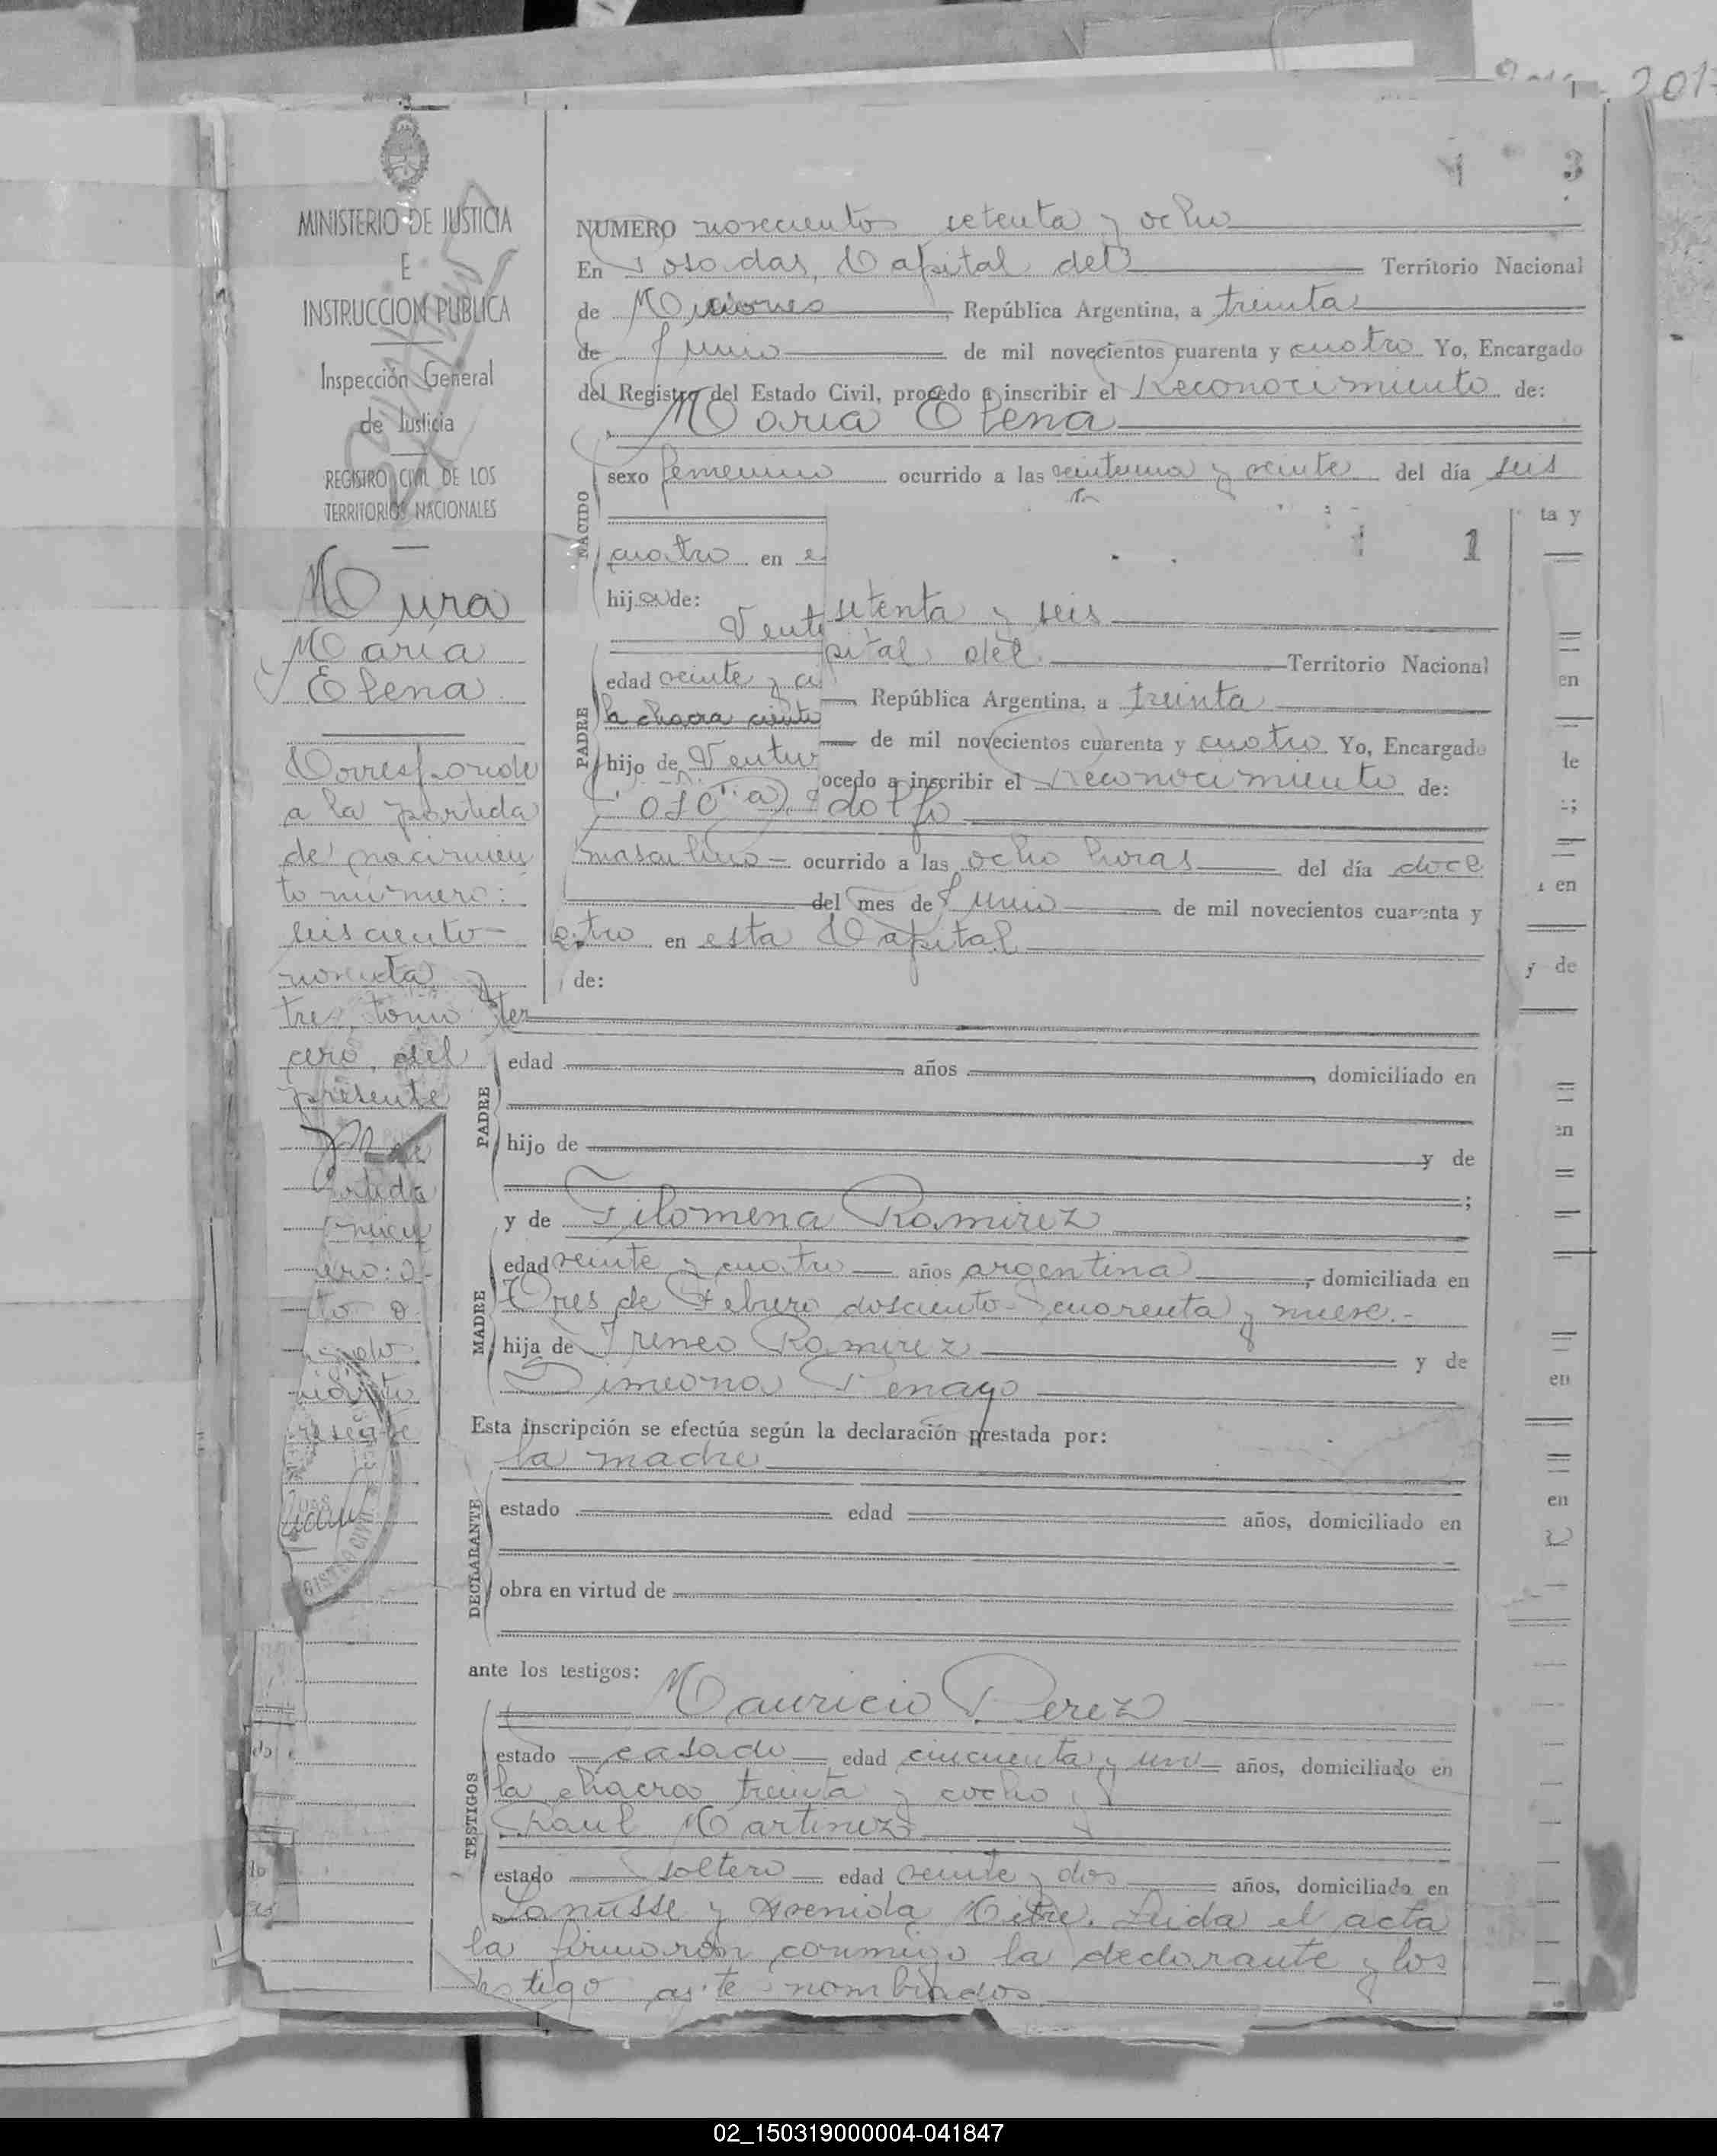 2017
1 3
MINISTERIO DE JUSTICIA
E
INSTRUCCION PUBLICA
Inspección General
de Justicia
REGISTRO CIVIL DE LOS
TERRITORIOS NACIONALES
Mura
Maria
Elena
Corresponde
a la partida
de nacimien
to número:
seiscientos
noventa y
tres, tomo
cero, del
presente
NUMERO novecientos setenta y ocho
En Posadas, Capital del Territorio Nacional
de Misiones, República Argentina, a treinta
de Junio de mil novecientos cuarenta y cuatro Yo, Encargado
del Registro del Estado Civil, procedo a inscribir el Reconocimiento de:
Maria Elena
NACIDO
sexo femenino ocurrido a las veintiuna y veinte del día seis
ta y
cuatro en e
1
hij a de:
Vent
setenta y seis
pital del Territorio Nacional
PADRE
edad veinte y ci
República Argentina, a treinta
la chacra ciento
de mil novecientos cuarenta y cuatro Yo, Encargado
hijo de Ventur
ocedo a inscribir el Reconocimiento de:
dolfo
masculino ocurrido a las ocho horas del día doce
del mes de Junio de mil novecientos cuarenta y
tro en esta Capital
de:
PADRE
edad años domiciliado en
hijo de y de
;
y de Filomena Ramirez
MADRE
edad veinte y cuatro años argentina, domiciliada en
Tres de Febrero doscientos cuarenta y nueve.
hija de Ireneo Ramirez y de
Simeona Penayo
Esta inscripción se efectúa según la declaración prestada por:
la madre
DECLARANTE
estado edad años, domiciliado en
obra en virtud de
ante los testigos:
Mauricio Perez
TESTIGOS
estado casado edad cincuenta y un años, domiciliado en
la chacra treinta y ocho y
Raul Martinez
estado soltero edad veinte y dos años, domiciliado en
Lanusse y Avenida Mitre. Leida el acta
la firmaron conmigo la declarante y los
testigo ante nombrados
02_150319000004-041847